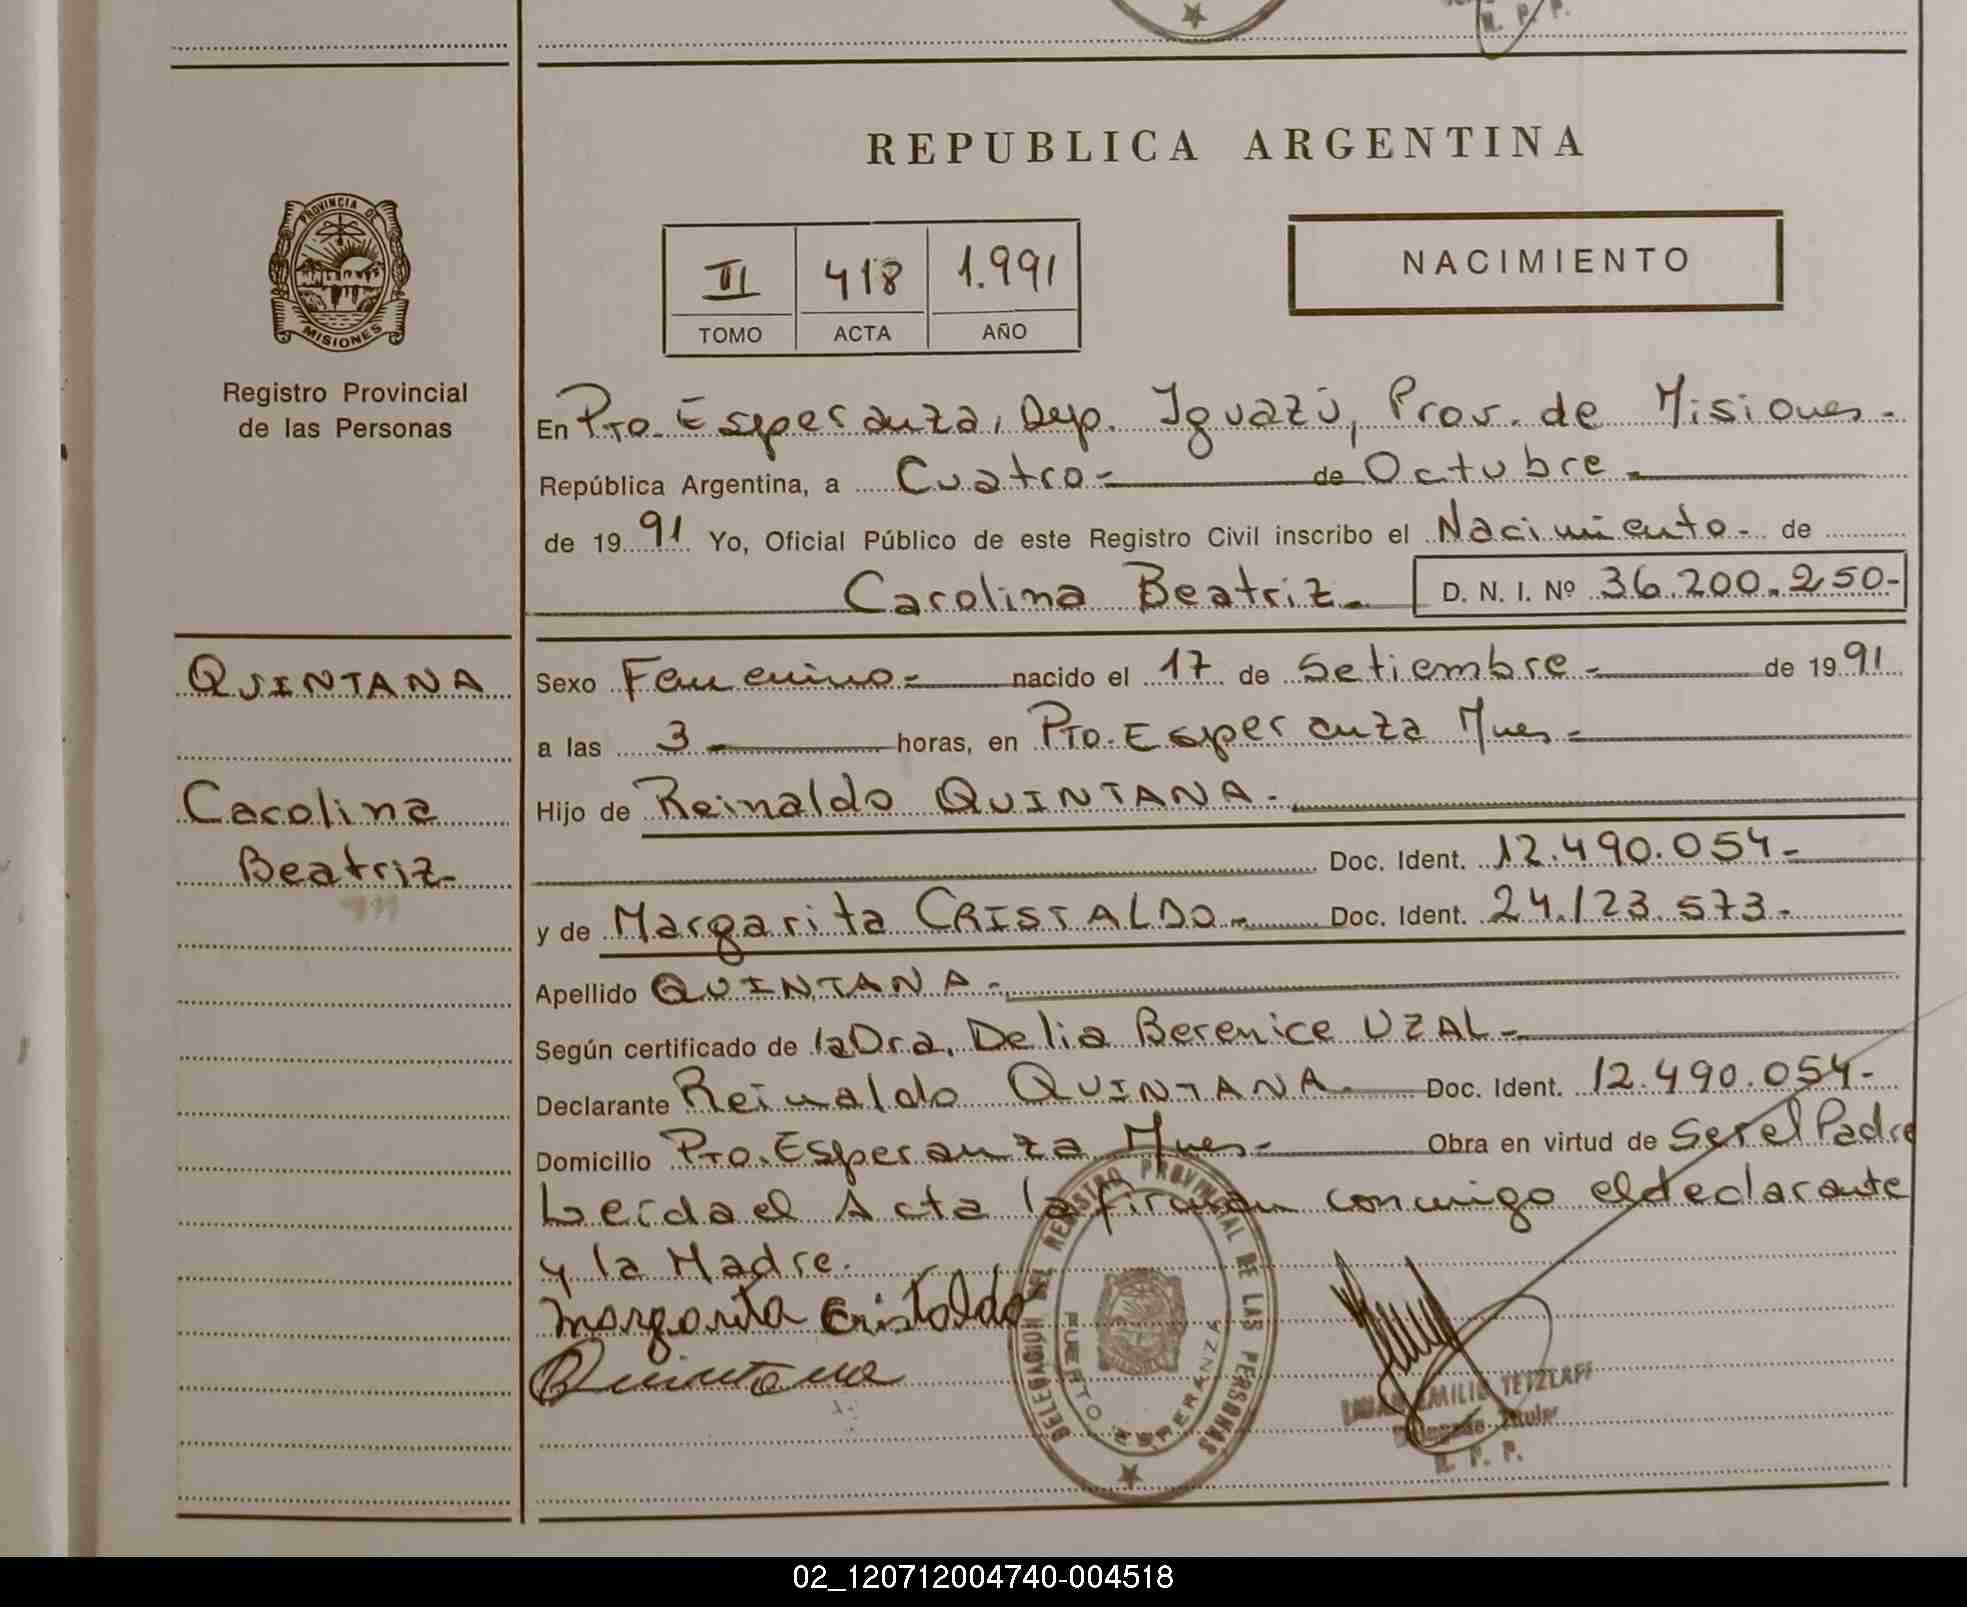 R. P. P.
REPUBLICA ARGENTINA
PROVINCIA DE
MISIONES
Registro Provincial
de las Personas
II 418 1.991
TOMO ACTA AÑO
NACIMIENTO
En Pto. Esperanza, Dep. Iguazú, Prov. de Misiones-
República Argentina, a Cuatro- de Octubre-
de 1991 Yo, Oficial Público de este Registro Civil inscribo el Nacimiento- de
Carolina Beatriz- D. N. I. Nº 36.200.250-
QUINTANA
Carolina
Beatriz-
Sexo Femenino- nacido el 17 de Setiembre- de 1991
a las 3- horas, en Pto. Esperanza Mnes-
Hijo de Reinaldo QUINTANA-
Doc. Ident. 12.490.054-
y de Margarita CRISTALDO- Doc. Ident. 24.123.573-
Apellido QUINTANA-
Según certificado de la Dra. Delia Berenice UZAL-
Declarante Reinaldo QUINTANA- Doc. Ident. 12.490.054-
Domicilio Pto. Esperanza Mnes- Obra en virtud de Ser el Padre
Leida el Acta la firman conmigo el declarante
y la Madre.
Margarita Cristaldo
Quintana
DELEGACION DEL REGISTRO PROVINCIAL DE LAS PERSONAS
PUERTO ESPERANZA
EMILIO TETZLAFF
Delegado Titular
R. P. P.
02_120712004740-004518